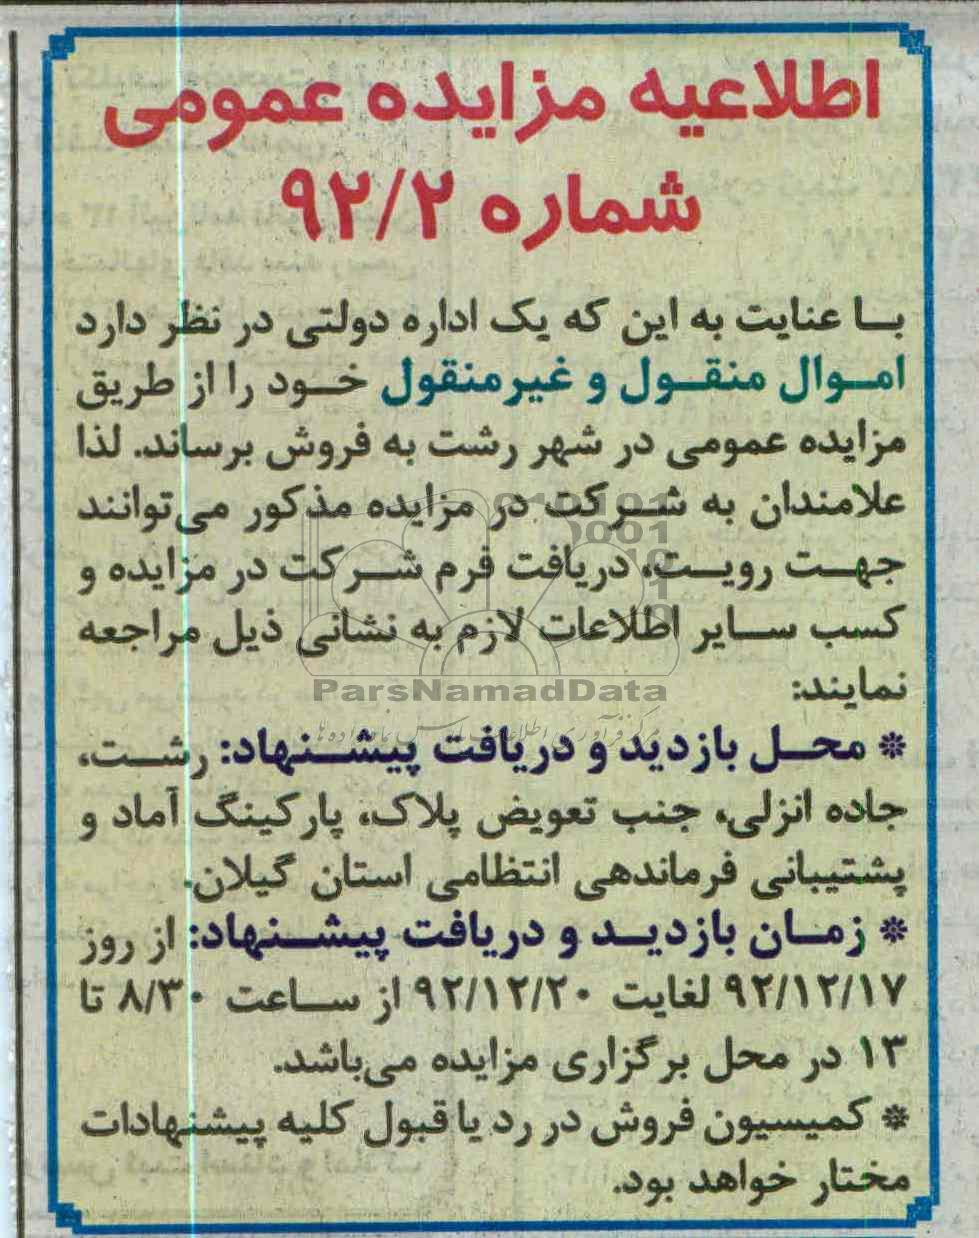 اطلاعیه مزایده عمومی
شماره ۹۲/۲
بـا عنایت به این که یک اداره دولتی در نظر دارد
امـوال منقـول و غیرمنقول خـود را از طریق
مزایده عمومی در شهر رشت به فروش برساند. لذا
علامندان به شـرکت در مزایده مذکور می‌توانند
جهـت رویـت، دریافت فرم شـرکت در مزایده و
کسب سـایر اطلاعات لازم به نشانی ذیل مراجعه
نمایند:
ParsNamadData
* محـل بازدید و دریافت پیشـنهاد: رشـت،
جاده انزلی، جنب تعویض پلاک، پارکینگ آماد و
پشتیبانی فرماندهی انتظامی استان گیلان.
* زمـان بازدیـد و دریافت پیشـنهاد: از روز
۹۲/۱۲/۱۷ لغایت ۹۲/۱۲/۲۰ از سـاعت ۸/۳۰ تا
۱۳ در محل برگزاری مزایده می‌باشد.
* کمیسیون فروش در رد یا قبول کلیه پیشنهادات
مختار خواهد بود.